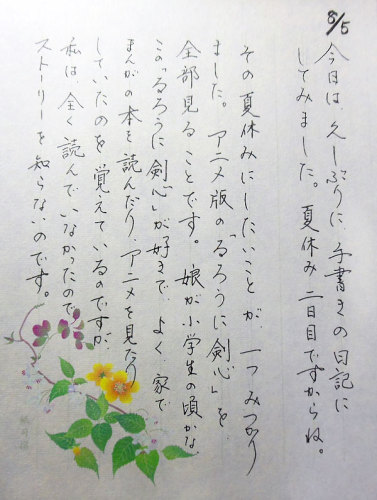 8/5
今日は、久しぶりに手書きの日記に
してみました。夏休み二日目ですからね。
その夏休みにしたいことが、一つみつかり
ました。アニメ版の「るろうに剣心」を
全部見ることです。娘が小学生の頃かな、
この「るろうに剣心」が好きで、よく家で
まんがの本を読んだり、アニメを見たり
していたのを覚えているのですが、
私は全く読んでいなかったので、
ストーリーを知らないのです。